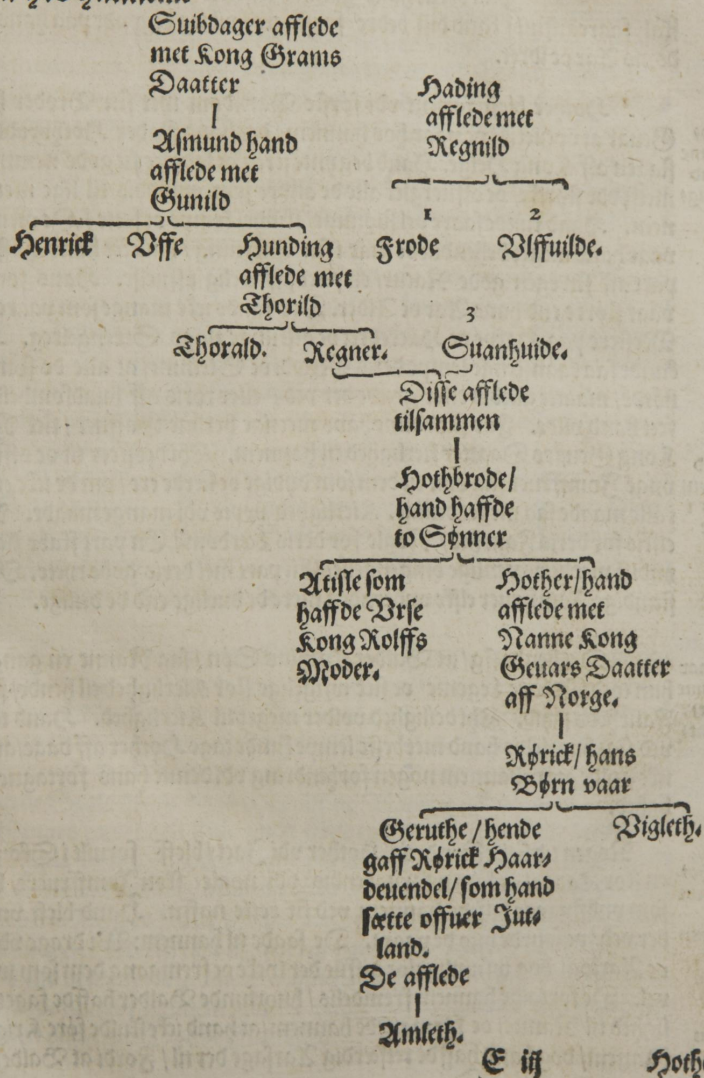 Suibdager afflede
met Kong Grams
Daatter
Asmund hand
afflede met
Gunild
Hading
afflede met
Regnild
1 2
Henrick Vffe Hunding
afflede met
Thorild
Frode Vlffuilde.
3
Thorald. Regner. Suanhuide.
Disse afflede
tilsammen
Hothbrode/
hand haffde
to Sønner
Atisle som
haffde Vrse
Kong Rolffs
Moder.
Hother/hand
afflede met
Nanne Kong
Geuars Daatter
aff Norge.
Rørick/ hans
Børn vaar
Geruthe /hende
gaff Rørick Haar⸗
deuendel/ som hand
sætte offuer Jut⸗
land.
De afflede
Vigleth.
Amleth.
E iij Hoth